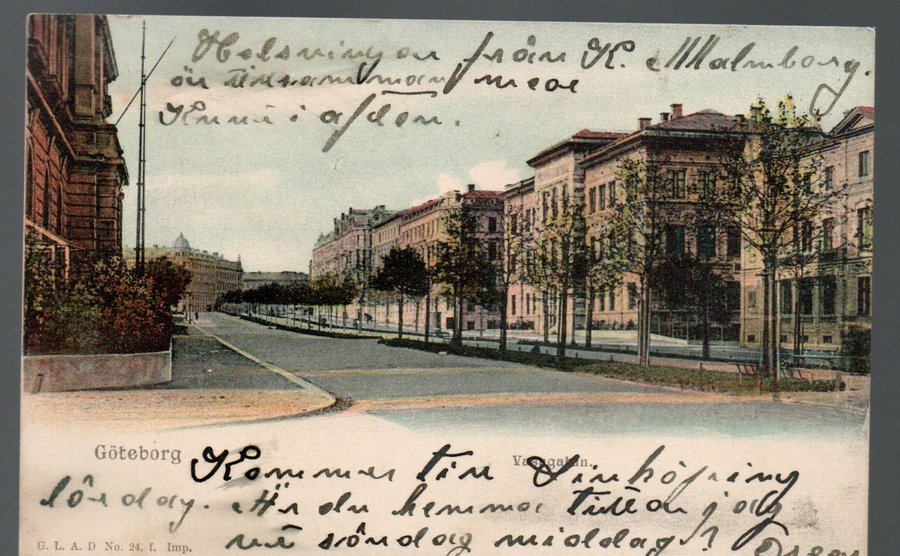 Helsningar från K. Malmborg.
är tillsamman med
i afton.
Göteborg
Vasagatan.
Kommer till Linköping
lördag. Är du hemma tittar jag
söndag middag?
G. L. A. D No. 24. f. Imp.